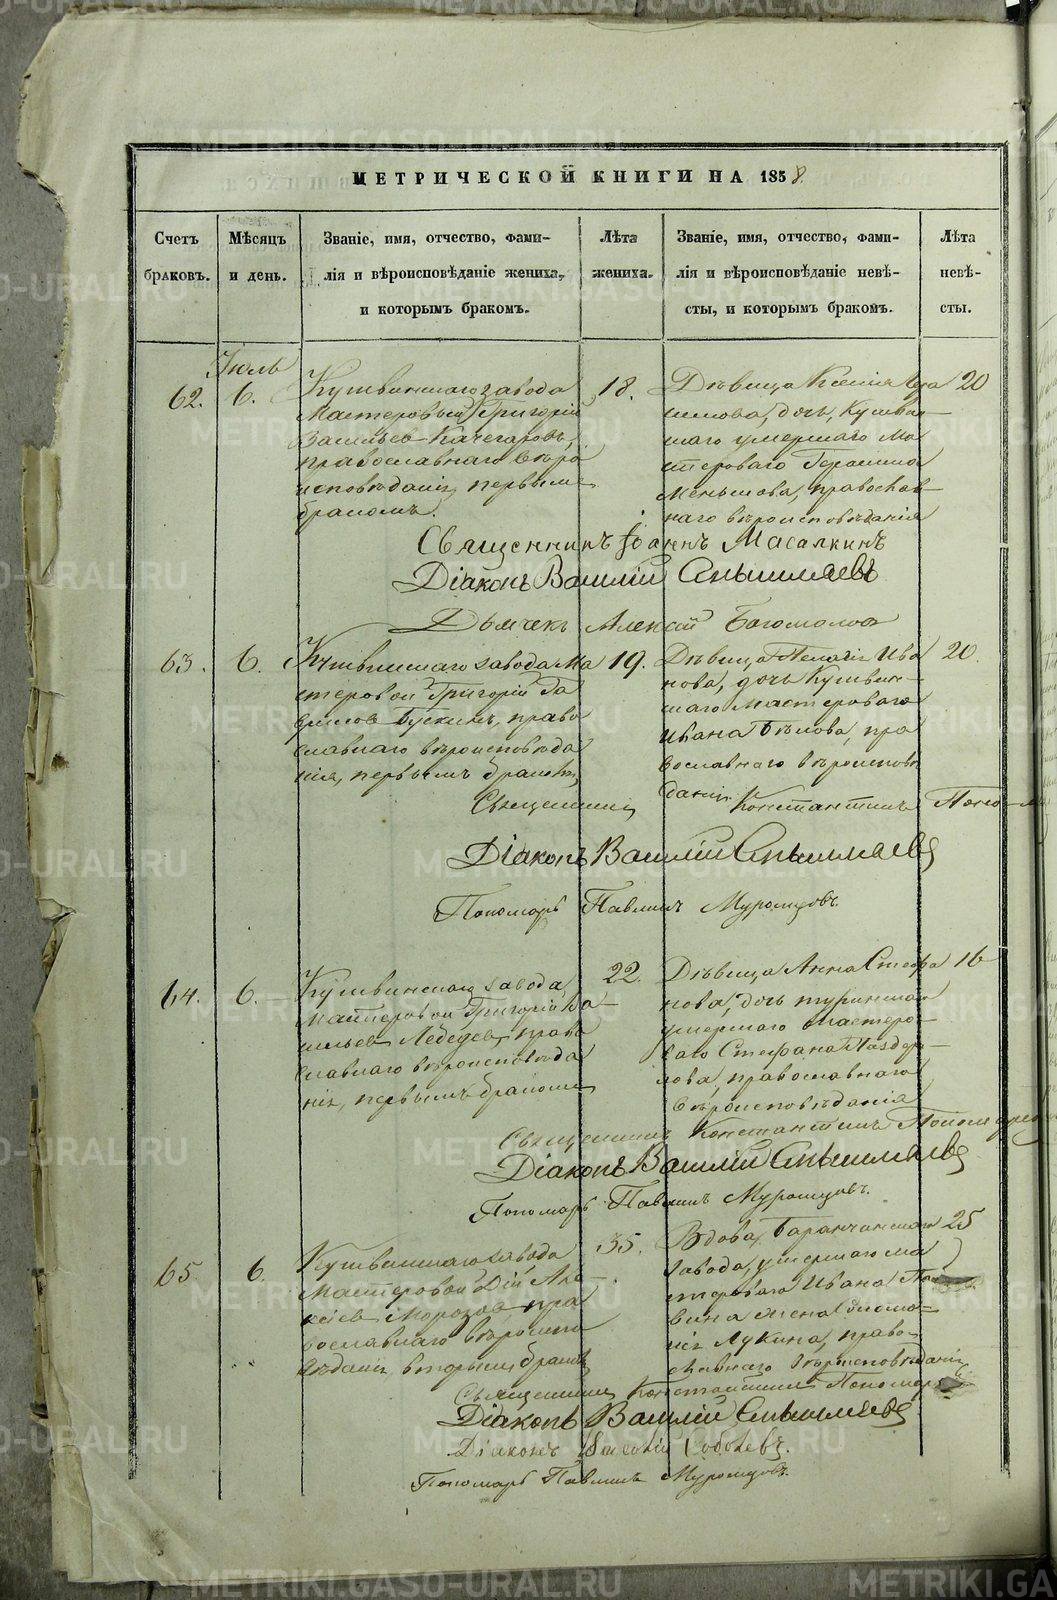 МЕТРИЧЕСКОЙ КНИГИ НА 1858
Счетъ браковъ.
Мѣсяцъ и день.
Званіе, имя, отчество, фами-
лія и вѣроисповѣданіе жениха,
и которымъ бракомъ.
Лѣта жениха.
Званіе, имя, отчество, фами-
лія и вѣроисповѣданіе невѣ-
сты, и которымъ бракомъ.
Лѣта невѣ-
сты.
Іюль
62.
6.
Кушвинскаго завода
Мастеровый Григорій
Васильев Качегаровъ,
православнаго вѣро
исповѣданія, первымъ
бракомъ.
18.
Дѣвица Ксенія
дочь, Кушвин-
скаго умершаго Ма
стероваго Герасима
Меньшова, православ-
наго вѣроисповѣданія
20
Священникъ Іоаннъ Масалкинъ
Діаконъ Василій
Дьячекъ Алексій Богомолов
63.
6.
Кушвинскаго завода Ма
стеровой Григорій Га
врилов православнаго вѣроисповѣда
нія, первымъ бракомъ,
19.
Дѣвица Пелагія Ива
нова, дочь Кушвин-
скаго Мастероваго
Ивана Бѣлова, пра
вославнаго вѣроисповѣ
данія
20.
Священникъ Константинъ
Діаконъ Василій
Пономарь Павлинъ Муромцовъ
64.
6.
Кушвинскаго завода
Мастеровой Григорій Ва-
сильев Лебедев, право
славнаго вѣроисповѣда
нія, первымъ бракомъ
22.
Дѣвица Анна Стефа
нова, дочь
умершаго мастеро-
ваго Стефана
православнаго
вѣроисповѣданія
16
Священникъ Константинъ
Діаконъ Василій
Пономарь Павлинъ Муромцовъ.
65
6.
Кушвинскаго завода
Мастеровой Дій Але-
ксѣев Морозов, пра
вославнаго вѣроиспо
вѣданія, вторымъ бракомъ
35.
Вдова, Баранчинскаго
завода, умершаго ма
стероваго Ивана
жена
Лукина, право-
славнаго вѣроисповѣданія
25
Священникъ Константинъ
Діаконъ Василій
Діаконъ Соболевъ.
Пономарь Павлинъ Муромцовъ.
METRIKI.GASO-URAL.RU